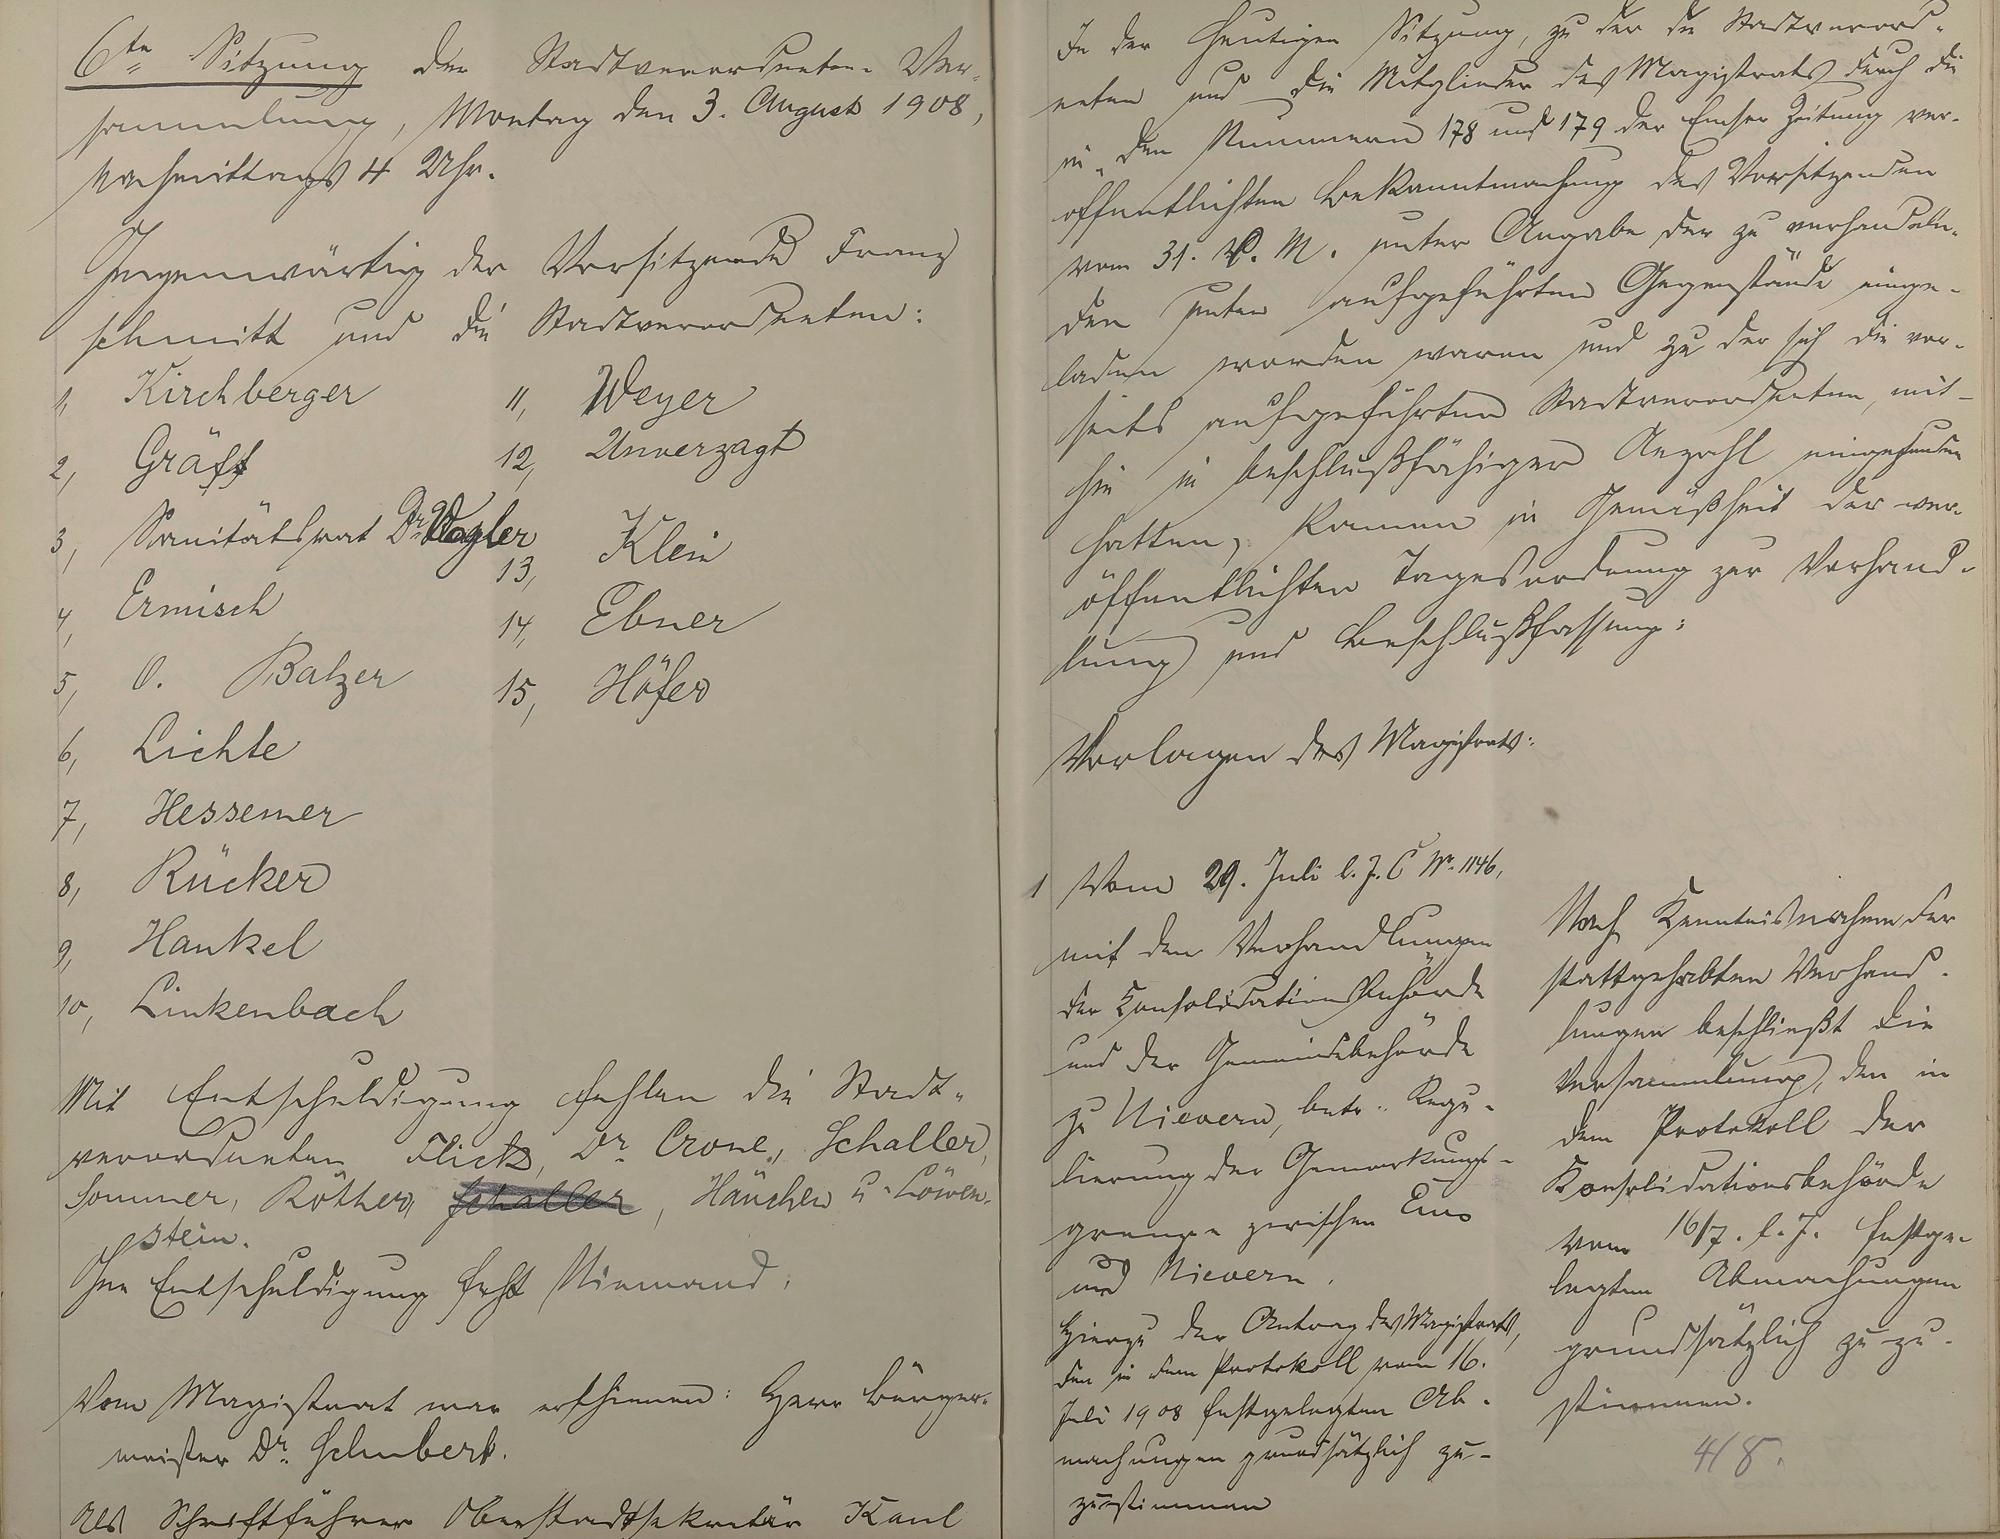 6te Sitzung der Stadtverordneten-Ver-
sammlung, Montag den 3. August 1908,
nachmittags 4 Uhr.
Gegenwärtig der Vorsitzende Franz
Schmitt und die Stadtverordneten:
1, Kirchberger
2, Gräff
3, Sanitätsrat Dr. Vogler
4, Ermisch
5, O. Balzer
6, Lichte
7, Hessemer
8, Rücker
9, Hankel
10, Linkenbach
11, Weyer
12, Unverzagt
13, Klein
14, Ebner
15, Höfer
Mit Entschuldigung fehlen die Stadt-
verordneten Flick, Dr. Crone, Schaller,
Sommer, Röther, Schaller, Häuchen u. Löwen-
stein.
Ohne Entschuldigung fehlt Niemand.
Vom Magistrat war erschienen: Herr Bürger-
meister Dr. Schubert.
Als Schriftführer Oberstadtsekretär Kaul
In der heutigen Sitzung, zu der die Stadtverord-
neten und die Mitglieder des Magistrats durch die
in den Nummern 178 und 179 der Emser Zeitung ver-
öffentlichten Bekanntmachung des Vorsitzenden
vom 31. v. M. unter Angabe der zu verhandeln-
den unten aufgeführten Gegenstände einge-
laden worden waren und zu der sich die vor-
seits aufgeführten Stadtverordneten, mit-
hin in beschlußfähiger Anzahl eingefunden
hatten, kamen in Gemäßheit der ver-
öffentlichten Tagesordnung zur Verhand-
lung und Beschlußfassung:
Vorlagen des Magistrats:
1 Vom 29. Juli l. J. C No. 1146,
mit den Verhandlungen
der Konsolidationsbehörde
und der Gemeindebehörde
zu Nievern, betr. Regu-
lierung der Gemarkungs-
grenze zwischen Ems
und Nievern.
Hierzu der Antrag des Magistrats,
den in dem Protokoll vom 16.
Juli 1908 festgelegten Ab-
machungen grundsätzlich zu-
zustimmen
Nach Kenntnisnahme der
stattgehabten Verhand-
lungen beschließt die
Versammlung, den in
dem Protokoll der
Konsolidationsbehörde
vom 16/7. l. J. festge-
legten Abmachungen
grundsätzlich zu zu-
stimmen.
4/8.